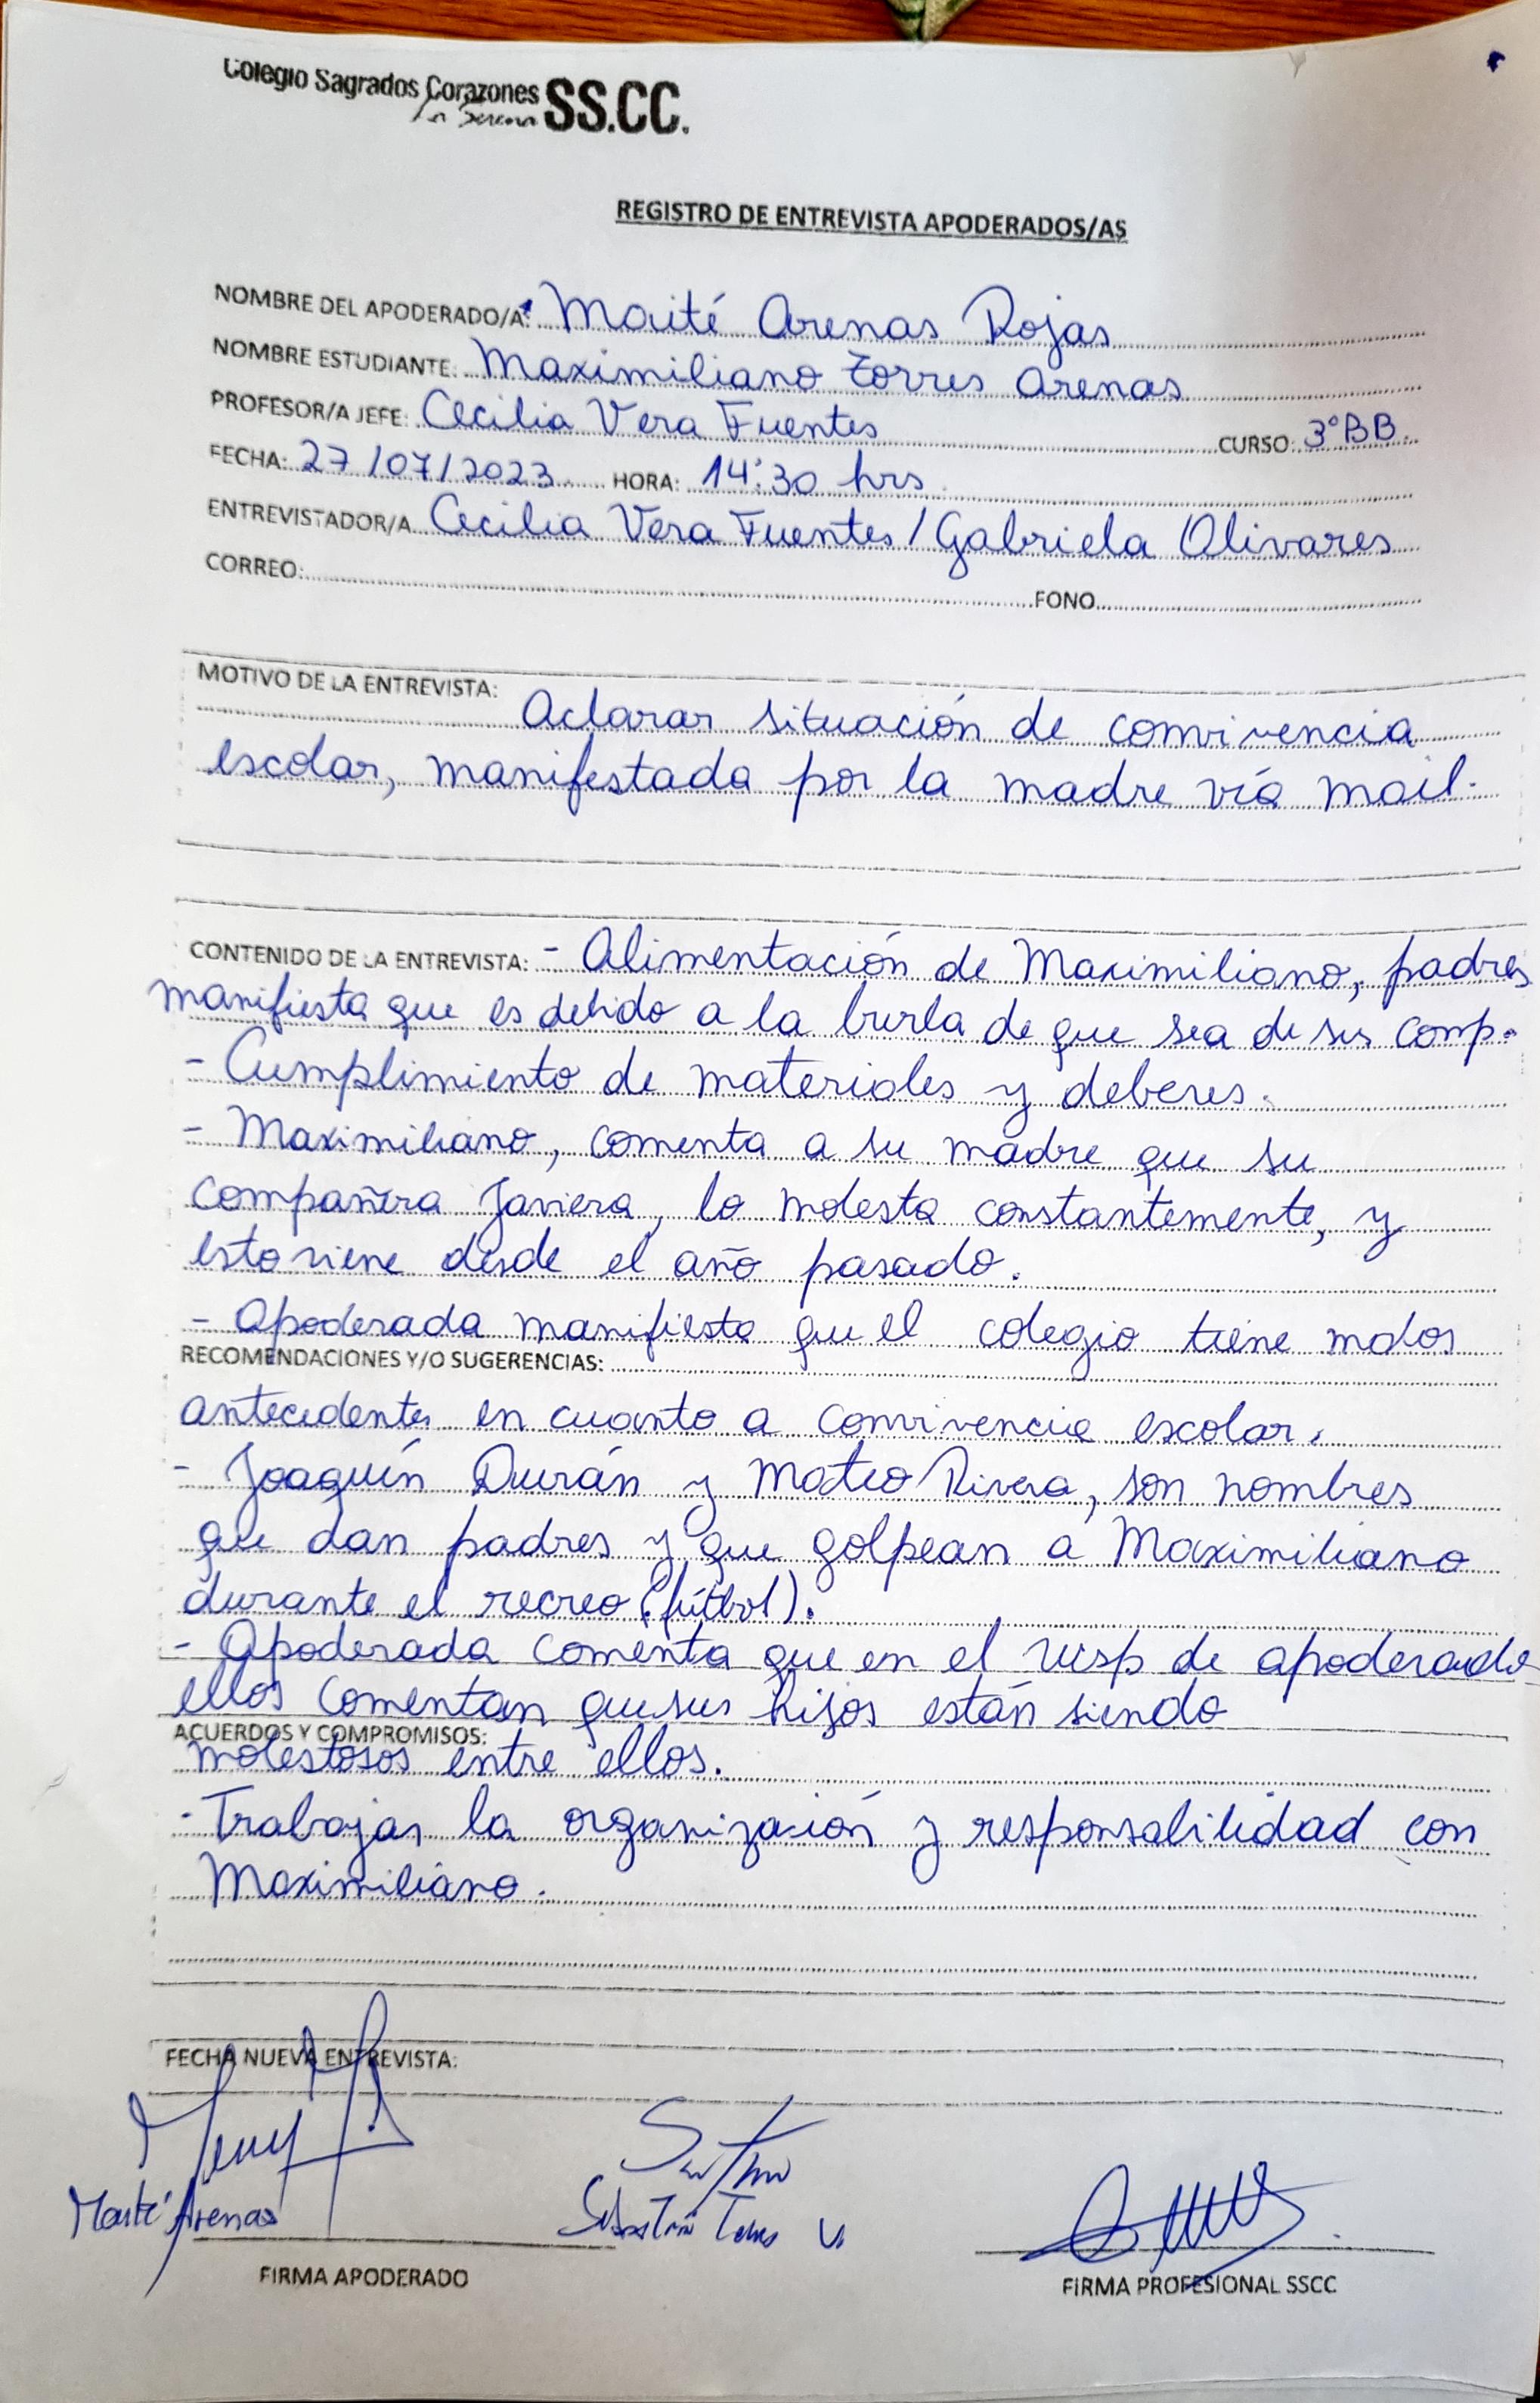 Colegio Sagrados Corazones SS.CC.
La Serena
REGISTRO DE ENTREVISTA APODERADOS/AS
NOMBRE DEL APODERADO/A: Maité Arenas Rojas
NOMBRE ESTUDIANTE: Maximiliano Torres Arenas
PROFESOR/A JEFE: Cecilia Vera Fuentes CURSO: 3°BB.
FECHA: 27/07/2023 HORA: 14:30 hrs
ENTREVISTADOR/A Cecilia Vera Fuentes / Gabriela Olivares
CORREO: FONO
MOTIVO DE LA ENTREVISTA: Aclarar situación de convivencia
escolar, manifestada por la madre vía mail.
CONTENIDO DE LA ENTREVISTA: - Alimentación de Maximiliano, padres
manifiesta que es debido a la burla de que sea de sus comp.
- Cumplimiento de materiales y deberes.
- Maximiliano, comenta a su madre que su
compañera Javiera, lo molesta constantemente, y
esto viene desde el año pasado.
- Apoderada manifiesta que el colegio tiene malos
RECOMENDACIONES Y/O SUGERENCIAS:
antecedentes en cuanto a convivencia escolar.
- Joaquín Durán y Mateo Rivera, son nombres
que dan padres y que golpean a Maximiliano
durante el recreo (fútbol).
- Apoderada comenta que en el wsp de apoderado
ellos comentan que sus hijos están siendo
ACUERDOS Y COMPROMISOS:
molestosos entre ellos.
- Trabajar la organización y responsabilidad con
Maximiliano.
FECHA NUEVA ENTREVISTA:
Maité Arenas
Sebastián Torres V.
FIRMA APODERADO
FIRMA PROFESIONAL SSCC